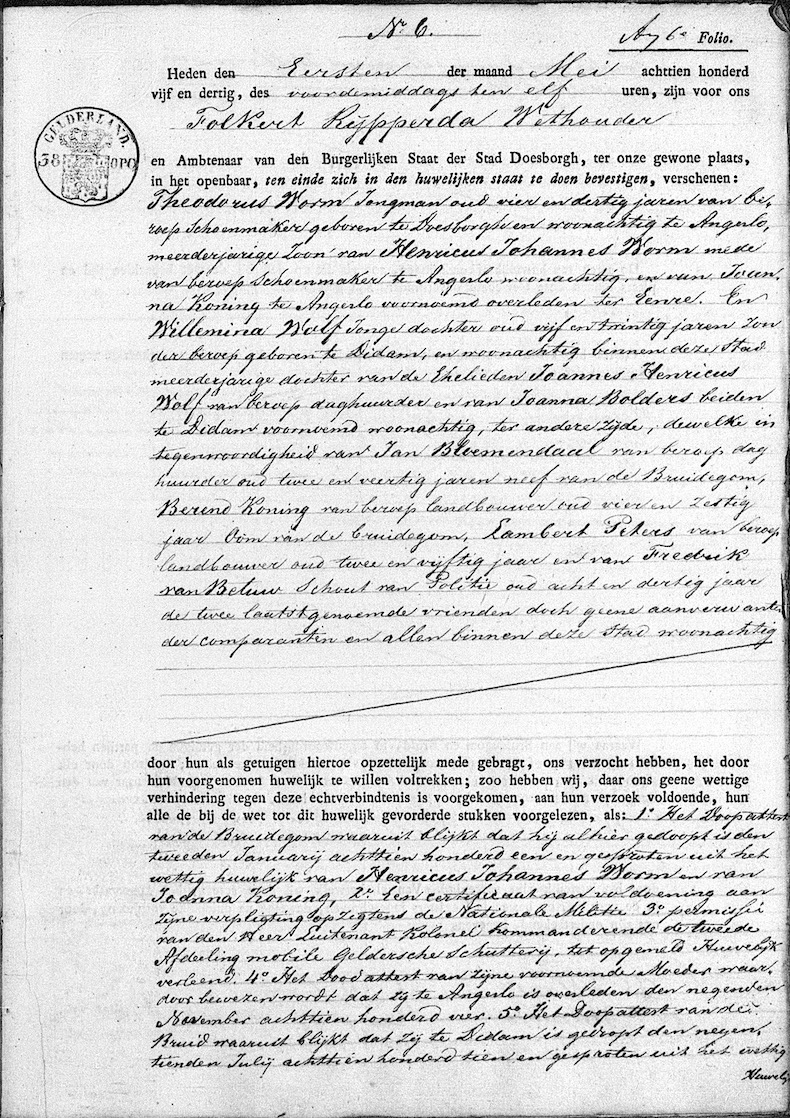 No 6.
Folio.
Heden den Eersten der maand Mei achttien honderd
vijf en dertig, des voordemiddags ten elf uren, zijn voor ons
Folkert Rijpperda Wethouder
GELDERLAND.
38 OPC
en Ambtenaar van den Burgerlijken Staat der Stad Doesborgh, ter onze gewone plaats,
in het openbaar, ten einde zich in den huwelijken staat te doen bevestigen, verschenen:
Theodorus Worm Jongman oud vier en dertig jaren van be,
roep Schoenmaker geboren te Doesborgh en woonachtig te Angerlo,
meerderjarige Zoon van Henricus Johannes Worm mede
van beroep Schoenmaker te Angerlo woonachtig, en van Joan,
na Koning te Angerlo voornoemd overleden ter Eenre. En
Willemina Wolf Jonge dochter oud vijf en twintig jaren Zon
der beroep geboren te Didam, en woonachtig binnen deze Stad
meerderjarige dochter van de Ehelieden Joannes Henricus
Wolf van beroep daghuurder en van Joanna Bolders beiden
te Didam voornoemd woonachtig, ter andere zijde, dewelke in
tegenwoordigheid van Jan Bloemendaal van beroep dag
huurder oud twee en veertig jaren neef van de Bruidegom,
Berend Koning van beroep landbouwer oud vier en Zestig
jaar Oom van de bruidegom, Lambert Peters van beroep
landbouwer oud twee en vijftig jaar en van Fredrik
van Betuw Schout van Politie oud acht en dertig jaar
de twee laatstgenoemde vrienden doch geene aanverwante
der comparanten en allen binnen deze Stad woonachtig
door hun als getuigen hiertoe opzettelijk mede gebragt, ons verzocht hebben, het door
hun voorgenomen huwelijk te willen voltrekken; zoo hebben wij, daar ons geene wettige
verhindering tegen deze echtverbindtenis is voorgekomen, aan hun verzoek voldoende, hun
alle de bij de wet tot dit huwelijk gevorderde stukken voorgelezen, als: 1o Het Doopattest
van de Bruidegom waaruit blijkt dat hij alhier gedoopt is den
tweeden Januarij achttien honderd een en gesproten uit het
wettig huwelijk van Henricus Johannes Worm en van
Joanna Koning, 2o Een certificaat van voldoening aan
zijne verpligting opzigtens de Nationale Militie 3o permissie
van den Heer Luitenant Kolonel kommanderende de tweede
Afdeeling mobile Geldersche Schutterij, tot opgemeld Huwelijk
verleend. 4o Het Doodattest van zijne voornoemde Moeder waar,
door bewezen wordt dat zij te Angerlo is overleden den negenden
November achttien honderd vier. 5o Het Doopattest van de
Bruid waaruit blijkt dat zij te Didam is gedoopt den negen,
tienden Julij achttien honderd tien en gesproten uit het wettig
Huwelijk